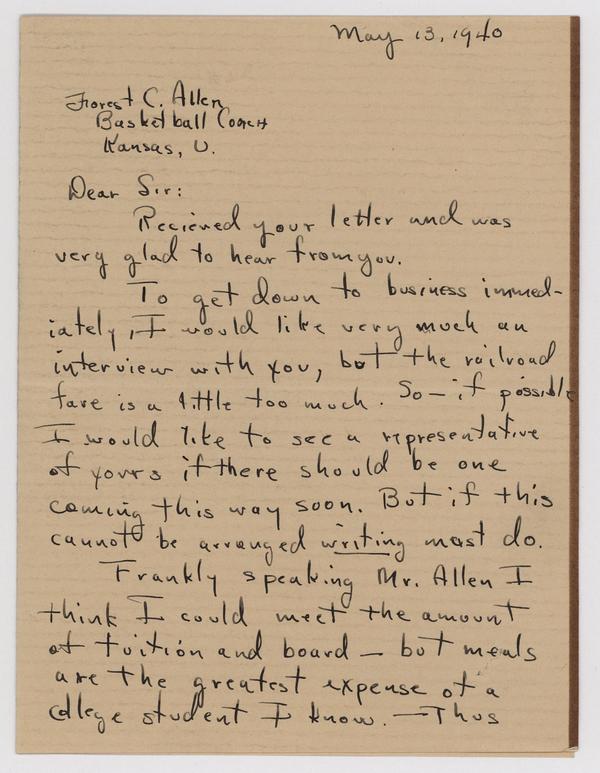 May 13, 1940
Forest C. Allen
Basketball Coach
Kansas, U.
Dear Sir:
Recieved your letter and was
very glad to hear from you.
To get down to business immed-
iately, I would like very much an
interview with you, but the railroad
fare is a little too much. So - if possible
I would like to see a representative
of yours if there should be one
coming this way soon. But if this
cannot be arranged writing must do.
Frankly speaking Mr. Allen I
think I could meet the amount
of tuition and board - but meals
are the greatest expense of a
college student I know. - Thus